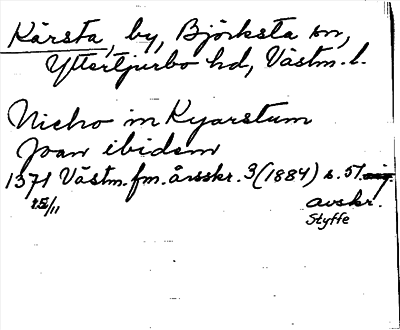 Kärsta, by, Björksta sn,
Yttertjurbo hd, Västm. l.
Nicho in Kyarstum
Joan ibidem
1371 Västm. fm. årsskr. 3 (1884) s. 51.
25/11 avskr.
Styffe